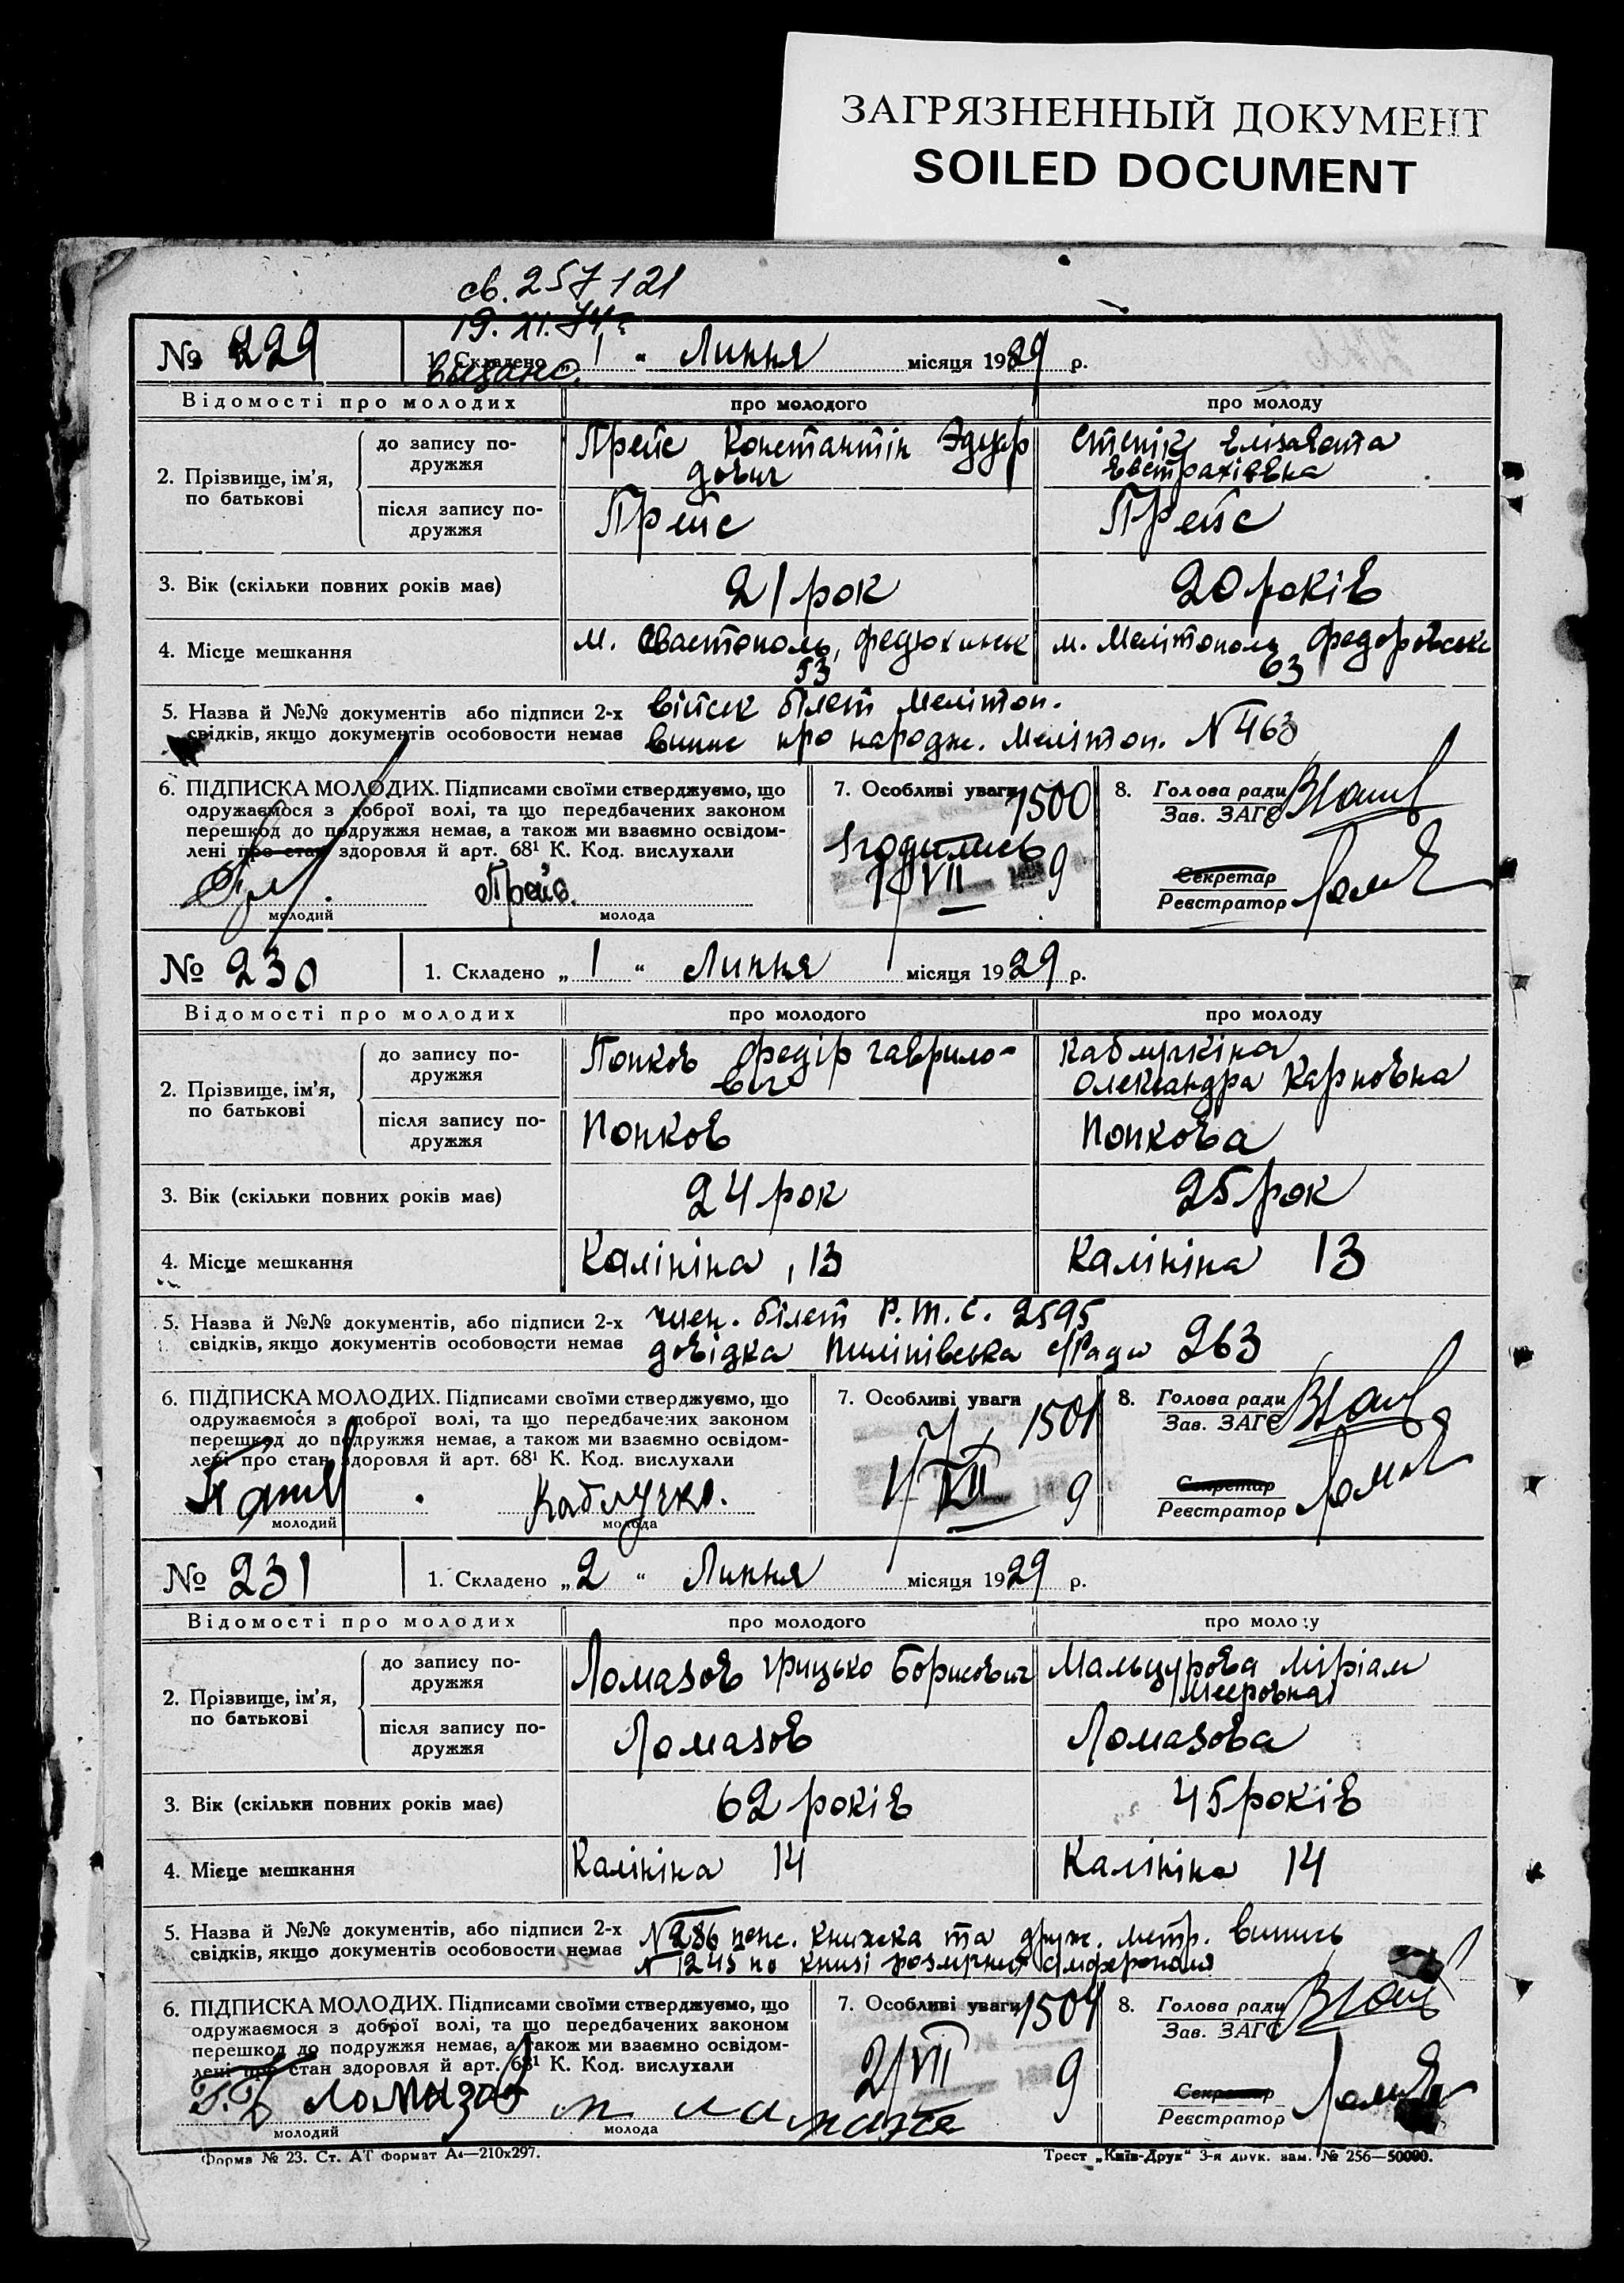 ЗАГРЯЗНЕННЫЙ ДОКУМЕНТ
SOILED DOCUMENT
св. 257121
19. XI. 74 г
выдано.
№ 229 1. Складено „ 1 “ Липня місяця 1929 р.
Відомості про молодих про молодого про молоду
2. Прізвище, ім’я, по батькові
до запису подружжя
Прейс Константін Эдуардович
Єлізавета Евстрахіевна
після запису по-
дружжя
Прейс Прейс
3. Вік (скільки повних років має) 21 рок 20 років
4. Місце мешкання м. Свастополь, 53 м. Мелітополь Федоровська 63
5. Назва й №№ документів або підписи 2-х військ білет Мелітоп.
свідків, якщо документів особовости немає випис про народж. Мелітоп. N 463
6. ПІДПИСКА МОЛОДИХ. Підписами своїми стверджуємо, що
одружаємося з доброї волі, та що передбачених законом
перешкод до подружжя немає, а також ми взаємно освідом-
лені про стан здоровля й арт. 68¹ К. Код. вислухали
Прейс.
молодий молода
7. Особливі уваги 1500
1/VII 9
8. Голова ради
Зав. ЗАГС
Секретар
Реєстратор
№ 230 1. Складено „ 1 “ Липня місяця 1929 р.
Відомості про молодих про молодого про молоду
2. Прізвище, ім’я,
по батькові
до запису по-
дружжя
Попков Федір Гаврило-
вич
Каблучкіна
Олександра Карповна
після запису по-
дружжя
Попков Попкова
3. Вік (скільки повних років має) 24 рок 25 рок
4. Місце мешкання Калініна, 13 Калініна 13
5. Назва й №№ документів, або підписи 2-х член. білет Р.т.с. 2595
свідків, якщо документів особовости немає довідка Пилипівська с/Ради 263
6. ПІДПИСКА МОЛОДИХ. Підписами своїми стверджуємо, що
одружаємося з доброї волі, та що передбачених законом
перешкод до подружжя немає, а також ми взаємно освідом-
лені про стан здоровля й арт. 68¹ К. Код. вислухали
Каблучкі.
молодий молода
7. Особливі уваги 1501
1/VII 9
8. Голова ради
Зав. ЗАГС
Секретар
Реєстратор
№ 231 1. Складено „ 2 “ Липня місяця 1929 р.
Відомості про молодих про молодого про молоду
2. Прізвище, ім’я,
по батькові
до запису по-
дружжя
Ломазов Грицько Борисович
Мальцурова Міріам
Мееровна
після запису по-
дружжя
Ломазов Ломазова
3. Вік (скільки повних років має) 62 років 45 років
4. Місце мешкання Калініна 14 Калініна 14
5. Назва й №№ документів, або підписи 2-х N 286 пенс. книжка та друж. метр. випись
свідків, якщо документів особовости немає N 1245 по книзі розлучних Сімферополя
6. ПІДПИСКА МОЛОДИХ. Підписами своїми стверджуємо, що
одружаємося з доброї волі, та що передбачених законом
перешкод до подружжя немає, а також ми взаємно освідом-
лені про стан здоровля й арт. 68¹ К. Код. вислухали
Г.Б Ломазов
молодий молода
7. Особливі уваги 1504
2/VII 9
8. Голова ради
Зав. ЗАГС
Секретар
Реєстратор
Форма № 23. Ст. АТ формат А4—210х297.
Трест „Київ-Друк“ 3-я друк. зам. № 256—50000.